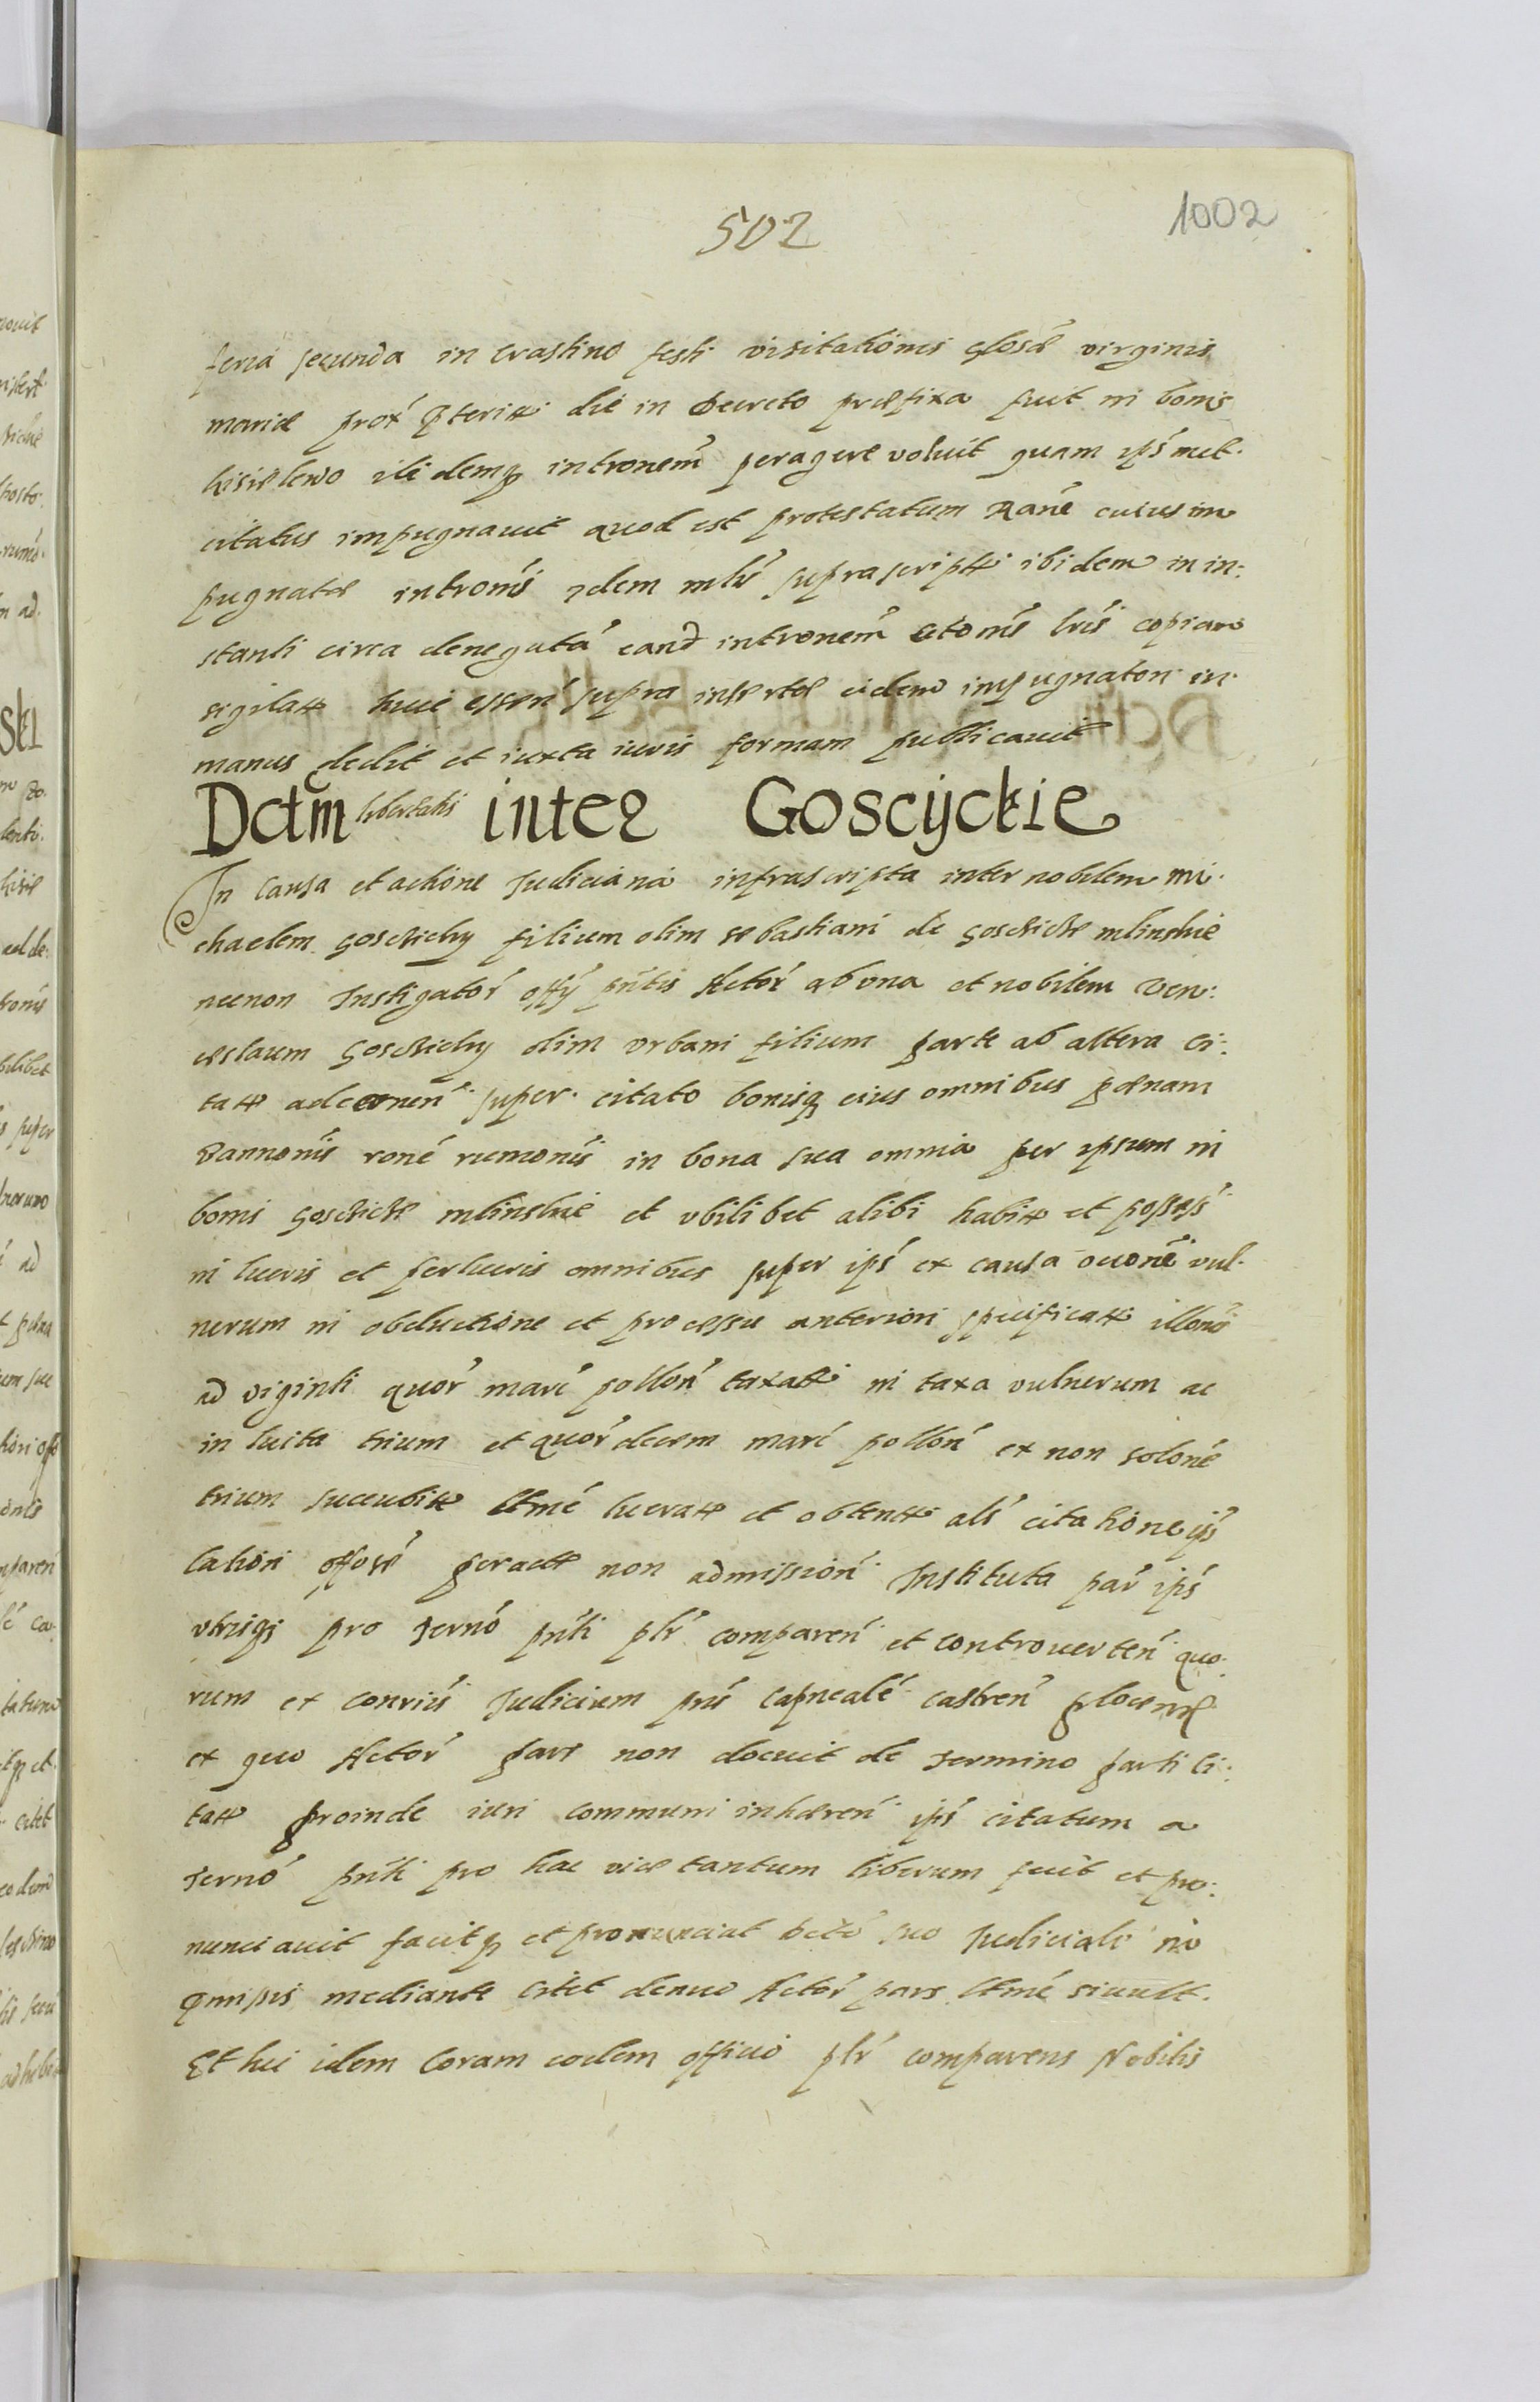 502
1002
feria secunda in Crastino festi visitationis glosae virginis
mariae prox pteritt die in Decreto praefixa fuit in bonis
kisielewo ibidemq intronem peragere voluit quam ips met
citatus impugnavit quod est protestatum Rane cuius im
pugnatae intronis idem mlr suprascriptt ibidem in in:
stanti circa denegata eand intronem citonis lris copiam
sigilatt huic essen supra insertae eidem impugnaton in
manus dedit et iuxta iuris formam publicavit
Dctm libertatis inter Goscyckie
In Causa et actione Judiciaria infrascripta inter nobilem Mi
chaelem goscziczky filium olim sebastiani de goscziczte mlinskie
necnon Instigator offy pntis Actor ab una et nobilem Ven:
ceslaum goscziczky olim Urbani filium parte ab altera ci:
tatt ad super citato bonisq eius omnibus paenam
Bannonis rone rumonis in bona sua omnia per ipsum in
bonis goscziczte mlinskie et ubilibet alibi habitt et possess
in lucris et perlucris omnibus super ips ex causa vul
nerum in obductione et processu anteriori specificatt illorum
ad viginti quor marc pollon taxatt in taxa vulnerum ac
in luita trium et quor decem marc pollon ex non solone
trium succubitt ltme lucratt et obtentt als citatione ips
lationi offose peractt non admission Instituta par ips
utrisqs pro Termo pnti plr comparen et controverten quo
rum ex conviis Judicium pns Capneale castren plocense
ex quo Actor pars non docuit de Termino parti ci:
tatt proinde iuri communi inhaeren ips citatum a
Termo pnti pro hac vice tantum liberum fecit et pro:
nunciavit facitq et pronunciat dcto suo Judiciali nio
qmipis mediante Citet denuo Actor pars ltme si vult.
Et hic idem Coram eodem officio plr comparens Nobilis